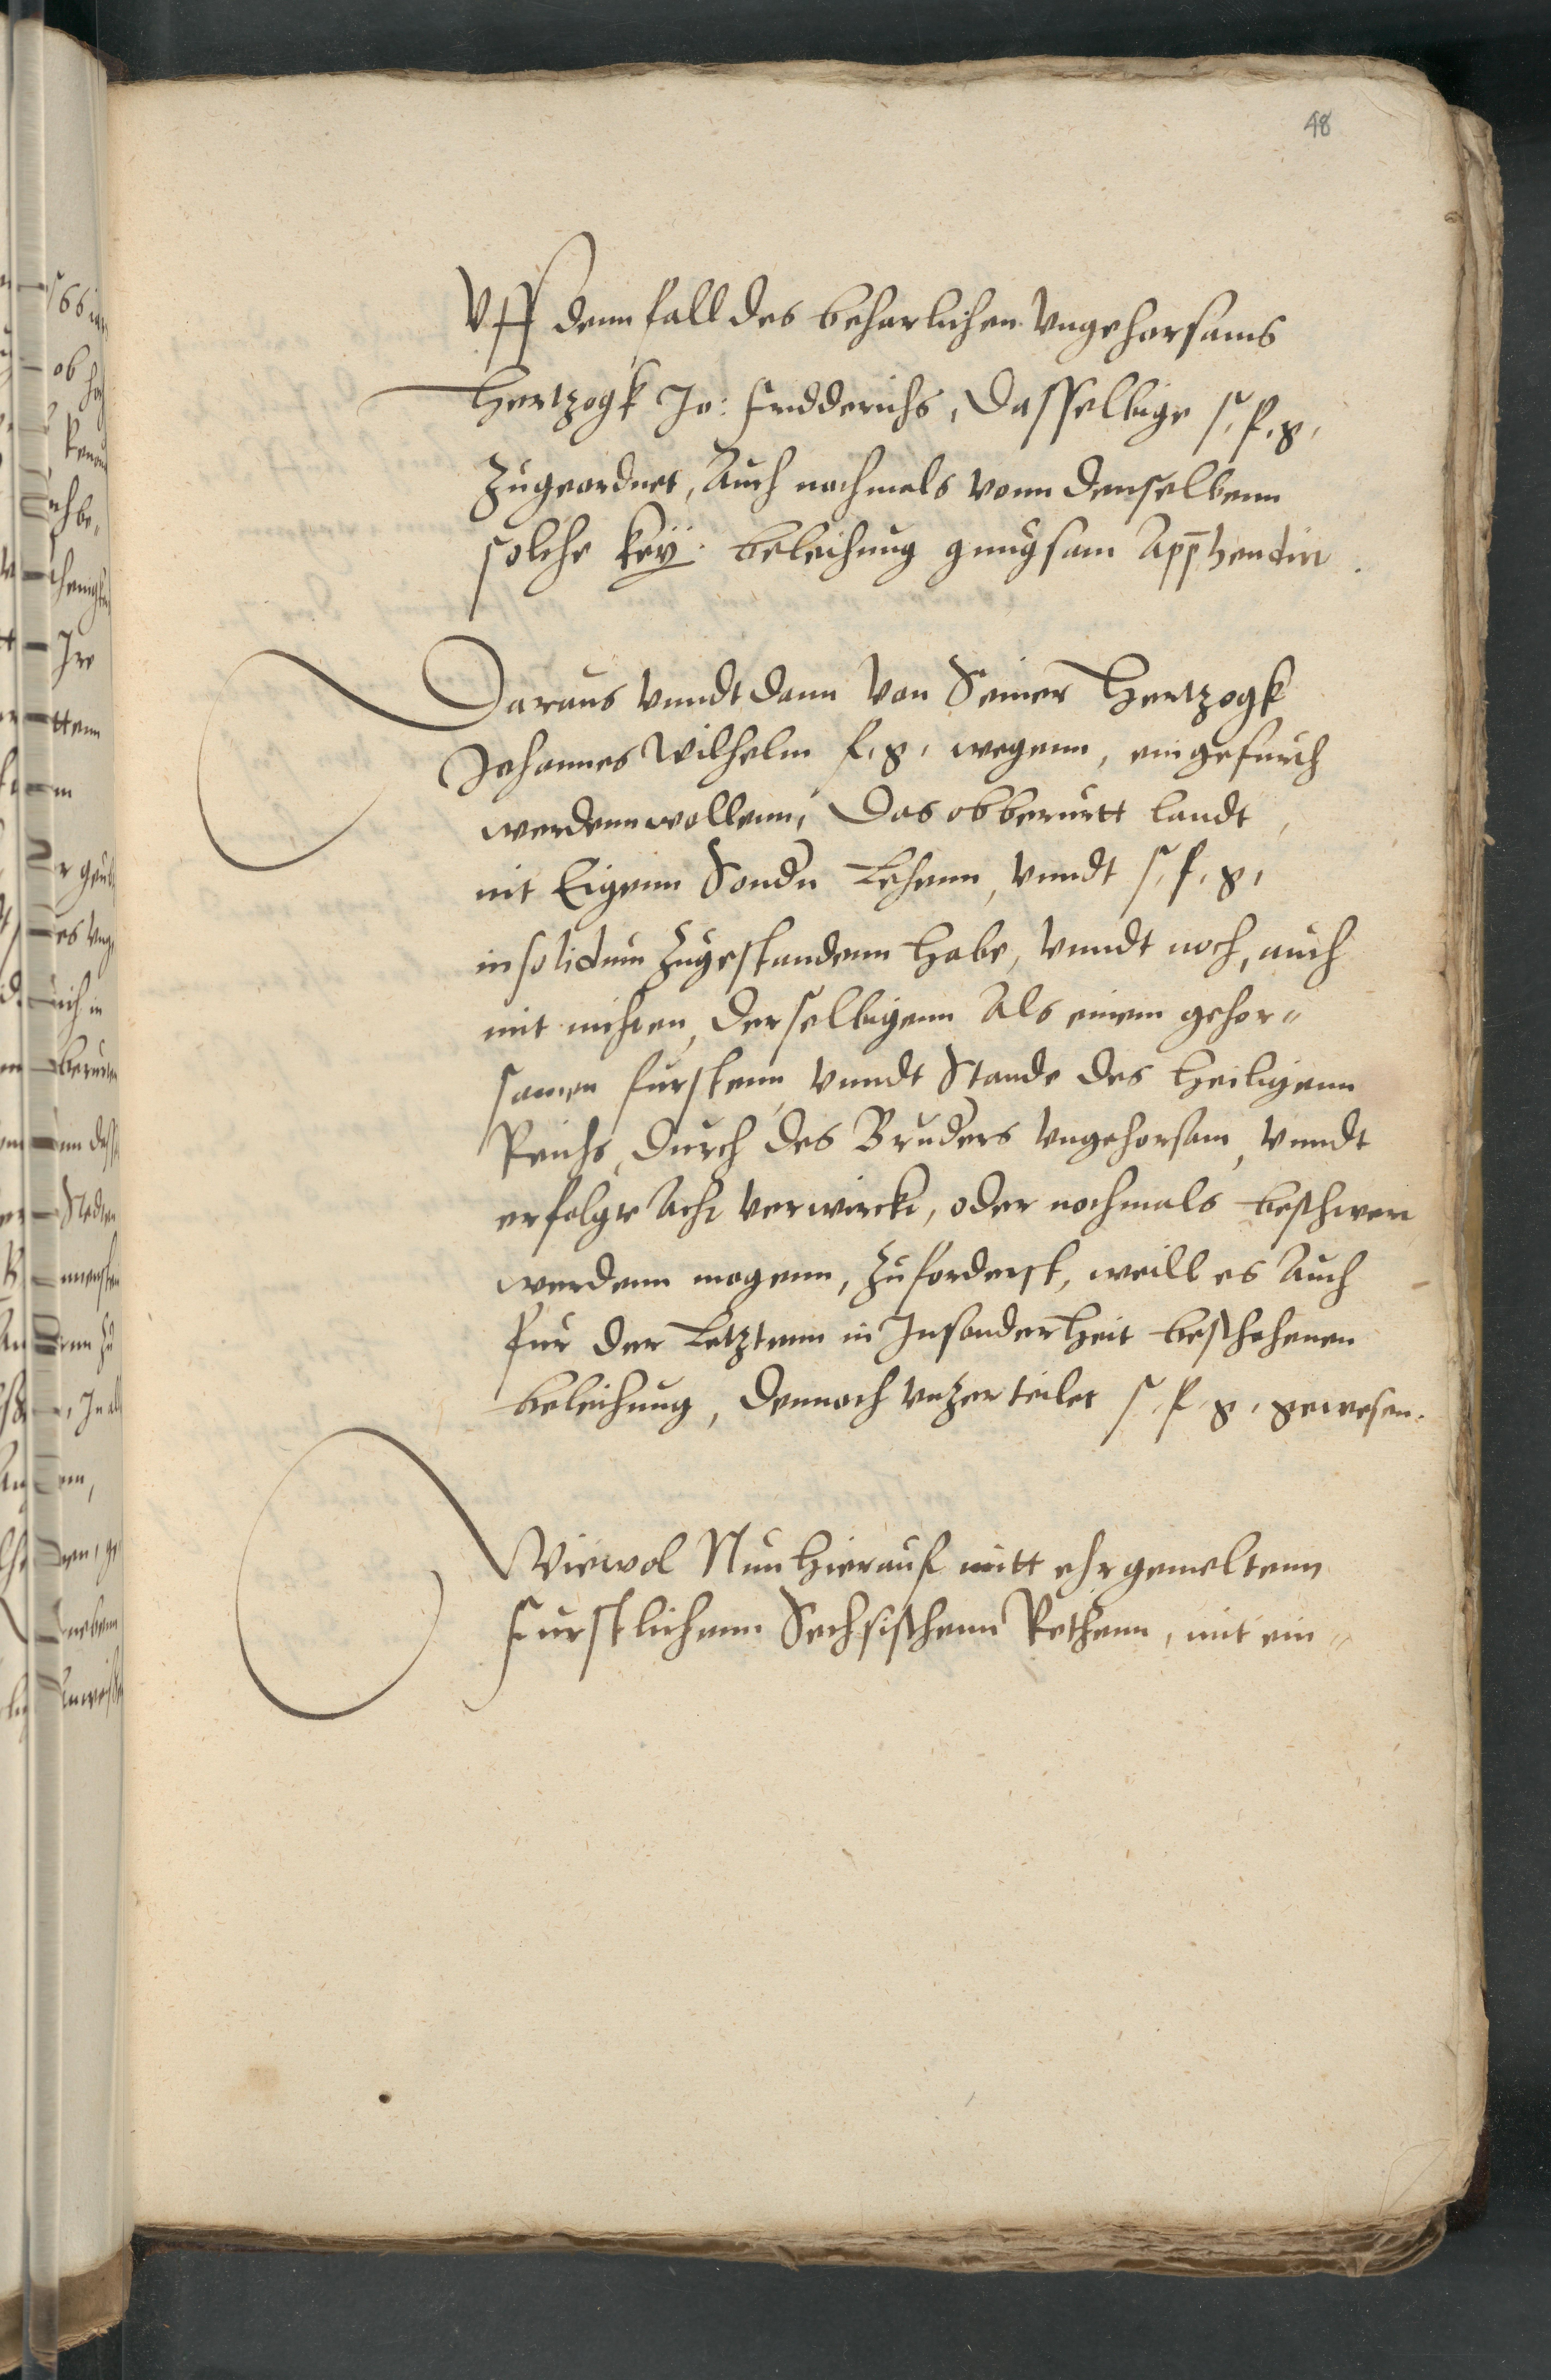 48
Vff denn fall des beharlichen Vngehorsams
Hertzogk Jo: Fridderichs, Dasselbige s. f. g.
Zugeordnet, Auch nachmals vonn denselbenn
solche Key. beleihung gnugsam App̄hendirt.
Daraus vnndt dann von Seiner Hertzogk
Johannes Wilhelm f. g. wegenn, eingefurth
werdenn wollenn, Das obberurtt landt
nit Eigenn Sondn Lehenn, vnndt s. f. g.
in solidum Zugestandenn habe, vnndt noch, auch
mit nichten, derselbigenn Als einem gehor=
samen furstenn vnndt Stande des Heiligenn
Reichs, durch des Bruders Vngehorsam, vnndt
erfolgte Acht verwirckt, oder nochmals beschwert
werdenn mogenn, Zuforderst, weill es Auch
fur der Letztenn in Insonderheit beschehenen
beleihung, dennoch vnzerteilet s. f. g. gewesen.
Wiewol Nun hierauf mitt ehrgemeltenn
Furstlichenn Sechsischenn Rethenn, mit ein=